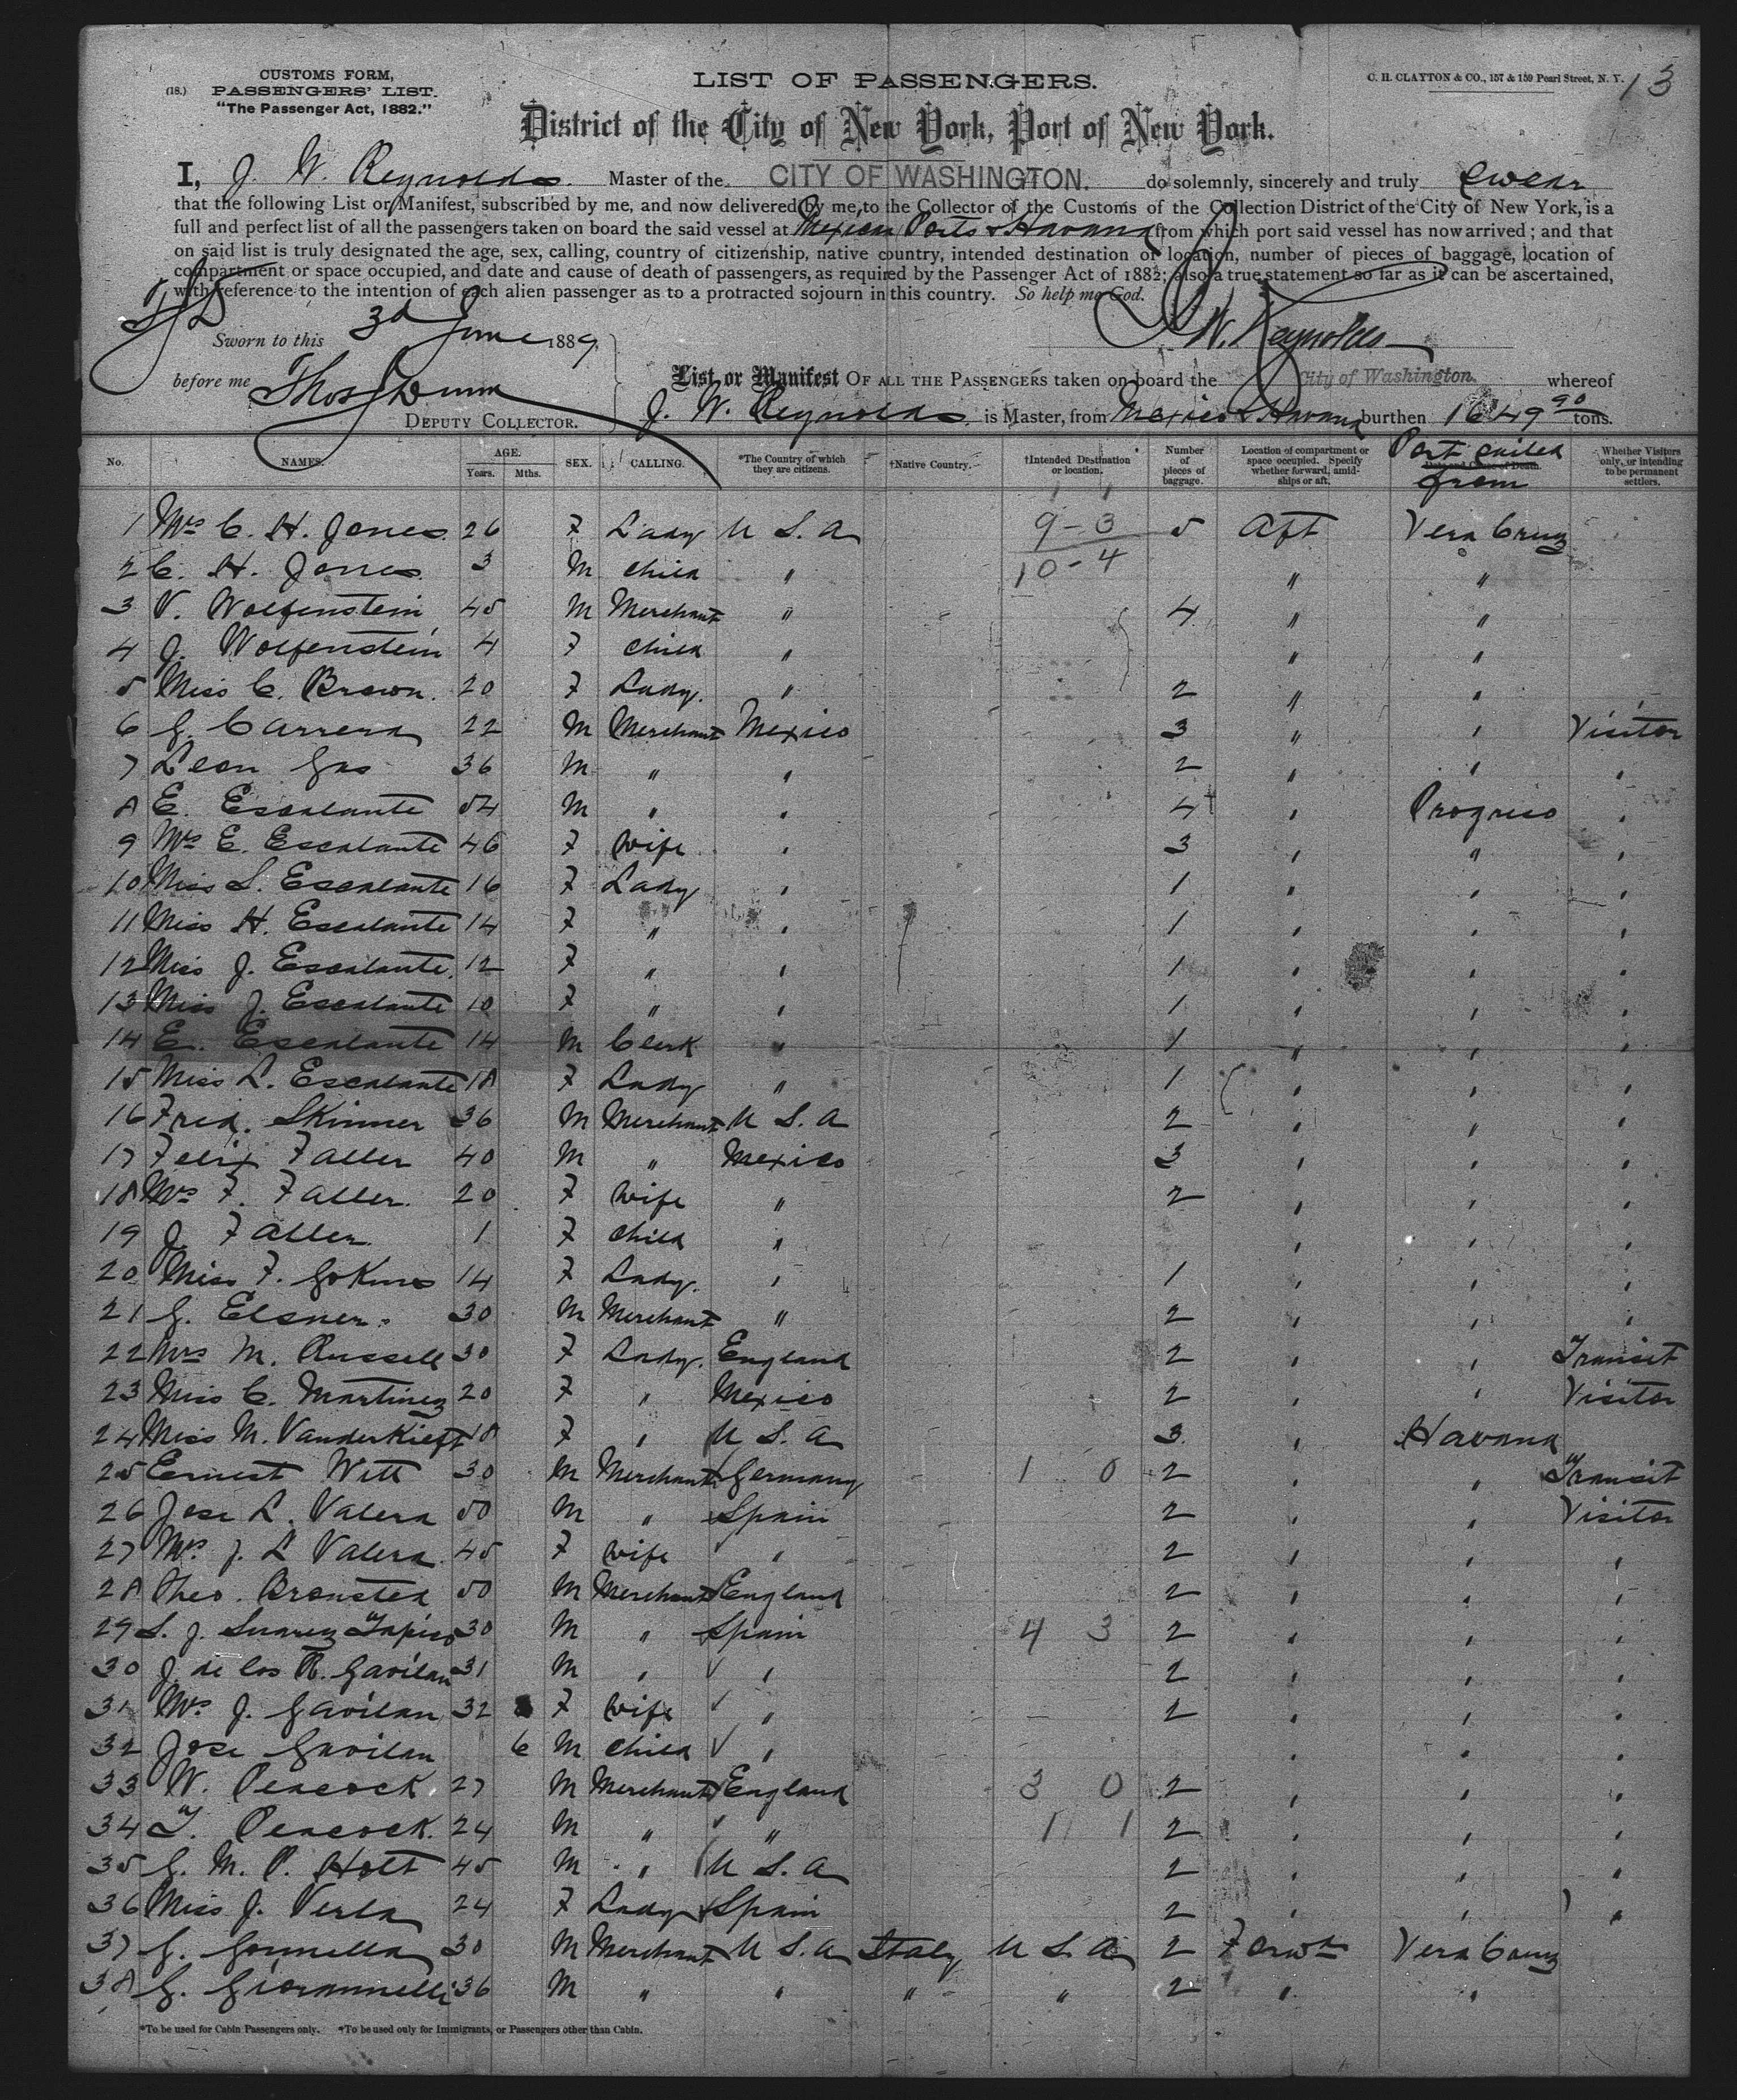 CUSTOMS FORM,
(18.) PASSENGERS' LIST.
"The Passenger Act, 1882."
LIST OF PASSENGERS.
C. H. CLAYTON & CO., 157 & 159 Pearl Street, N. Y. 13
District of the City of New York, Port of New York.
I, J. W. Reynolds. Master of the CITY OF WASHINGTON. do solemnly, sincerely and truly swear
that the following List or Manifest, subscribed by me, and now delivered by me to the Collector of the Customs of the Collection District of the City of New York, is a
full and perfect list of all the passengers taken on board the said vessel at Mexican Ports & Havana from which port said vessel has now arrived; and that
on said list is truly designated the age, sex, calling, country of citizenship, native country, intended destination or location, number of pieces of baggage, location of
compartment or space occupied, and date and cause of death of passengers, as required by the Passenger Act of 1882; also a true statement so far as it can be ascertained,
with reference to the intention of each alien passenger as to a protracted sojourn in this country. So help me God.
Sworn to this 3d June 1889
J. W. Reynolds
before me Thos Dunn
DEPUTY COLLECTOR.
List or Manifest OF ALL THE PASSENGERS taken on board the City of Washington whereof
J. W. Reynolds. is Master, from Mexico & Havana burthen 1649 90 tons.
No. NAMES. AGE. Years. Mths. SEX. CALLING. *The Country of which they are citizens. †Native Country. †Intended Destination or location. Number of pieces of baggage. Location of compartment or space occupied. Specify whether forward, amidships or aft. Date and Cause of Death. Port sailed from Whether Visitors only, or intending to be permanent settlers.
1 Mrs C. H. Jones 26 F Lady U S. A 9-3 5 Aft Vera Cruz
2 C. H. Jones 3 M Child " 10-4 " "
3 V. Wolfenstein 45 M Merchant " 4 " "
4 J. Wolfenstein 4 F Child " " "
5 Miss C. Brown. 20 F Lady. " 2 " "
6 G. Carrera 22 M Merchant Mexico 3 " " Visitor
7 Leon Gas 36 M " " 2 " " "
8 E. Escalante 54 M " " 4 " Progreso "
9 Mrs E. Escalante 46 F Wife " 3 " " "
10 Miss L. Escalante 16 F Lady " 1 " " "
11 Miss H. Escalante 14 F " " 1 " " "
12 Miss J. Escalante. 12 F " " 1 " " "
13 Miss J. Escalante 10 F " " 1 " " "
14 E. Escalante 14 M Clerk " 1 " " "
15 Miss L. Escalante 18 F Lady " 1 " " "
16 Fred. Skinner 36 M Merchant U S. A 2 " " "
17 Felix Faller 40 M " Mexico 3 " " "
18 Mrs F. Faller. 20 F Wife " 2 " " "
19 J. Faller. 1 F Child " " " "
20 Miss F. 14 F Lady. " 1 " " "
21 G. Elsner. 30 M Merchant " 2 " " "
22 Mrs M. Russell 30 F Lady. England 2 " " Transit
23 Miss C. Martinez 20 F " Mexico 2 " " Visitor
24 Miss M. VanderKieft 18 F " U S. A 3. " Havana
25 Ernest Witt 30 M Merchant Germany 1 0 2 " " Transit
26 Jose L. Valera 50 M " Spain 2 " " Visitor
27 Mrs J. L Valera. 45 F Wife " 2 " " "
28 Theo. Bronsted 50 M Merchant England 2 " " "
29 S. J. Suarez 30 M " Spain 4 3 2 " " "
30 J. de los R. Gavilan 31 M " " 2 " " "
31 Mrs J. Gavilan 32 F Wife " 2 " " "
32 Jose Gavilan 6 M Child " " " "
33 W. Peacock 27 M Merchant England 3 0 2 " " "
34 T. Peacock. 24 M " " 1 1 2 " " "
35 G. M. P. Holt 45 M " U S. A 2 " " "
36 Miss J. Verla 24 F Lady Spain 2 " " "
37 G. Gonnella 30 M Merchant U S. A Italy U S. A 2 Forwd Vera Cruz
38 G. Giorannelli 36 M " " " " 2 " "
*To be used for Cabin Passengers only. †To be used only for Immigrants, or Passengers other than Cabin.